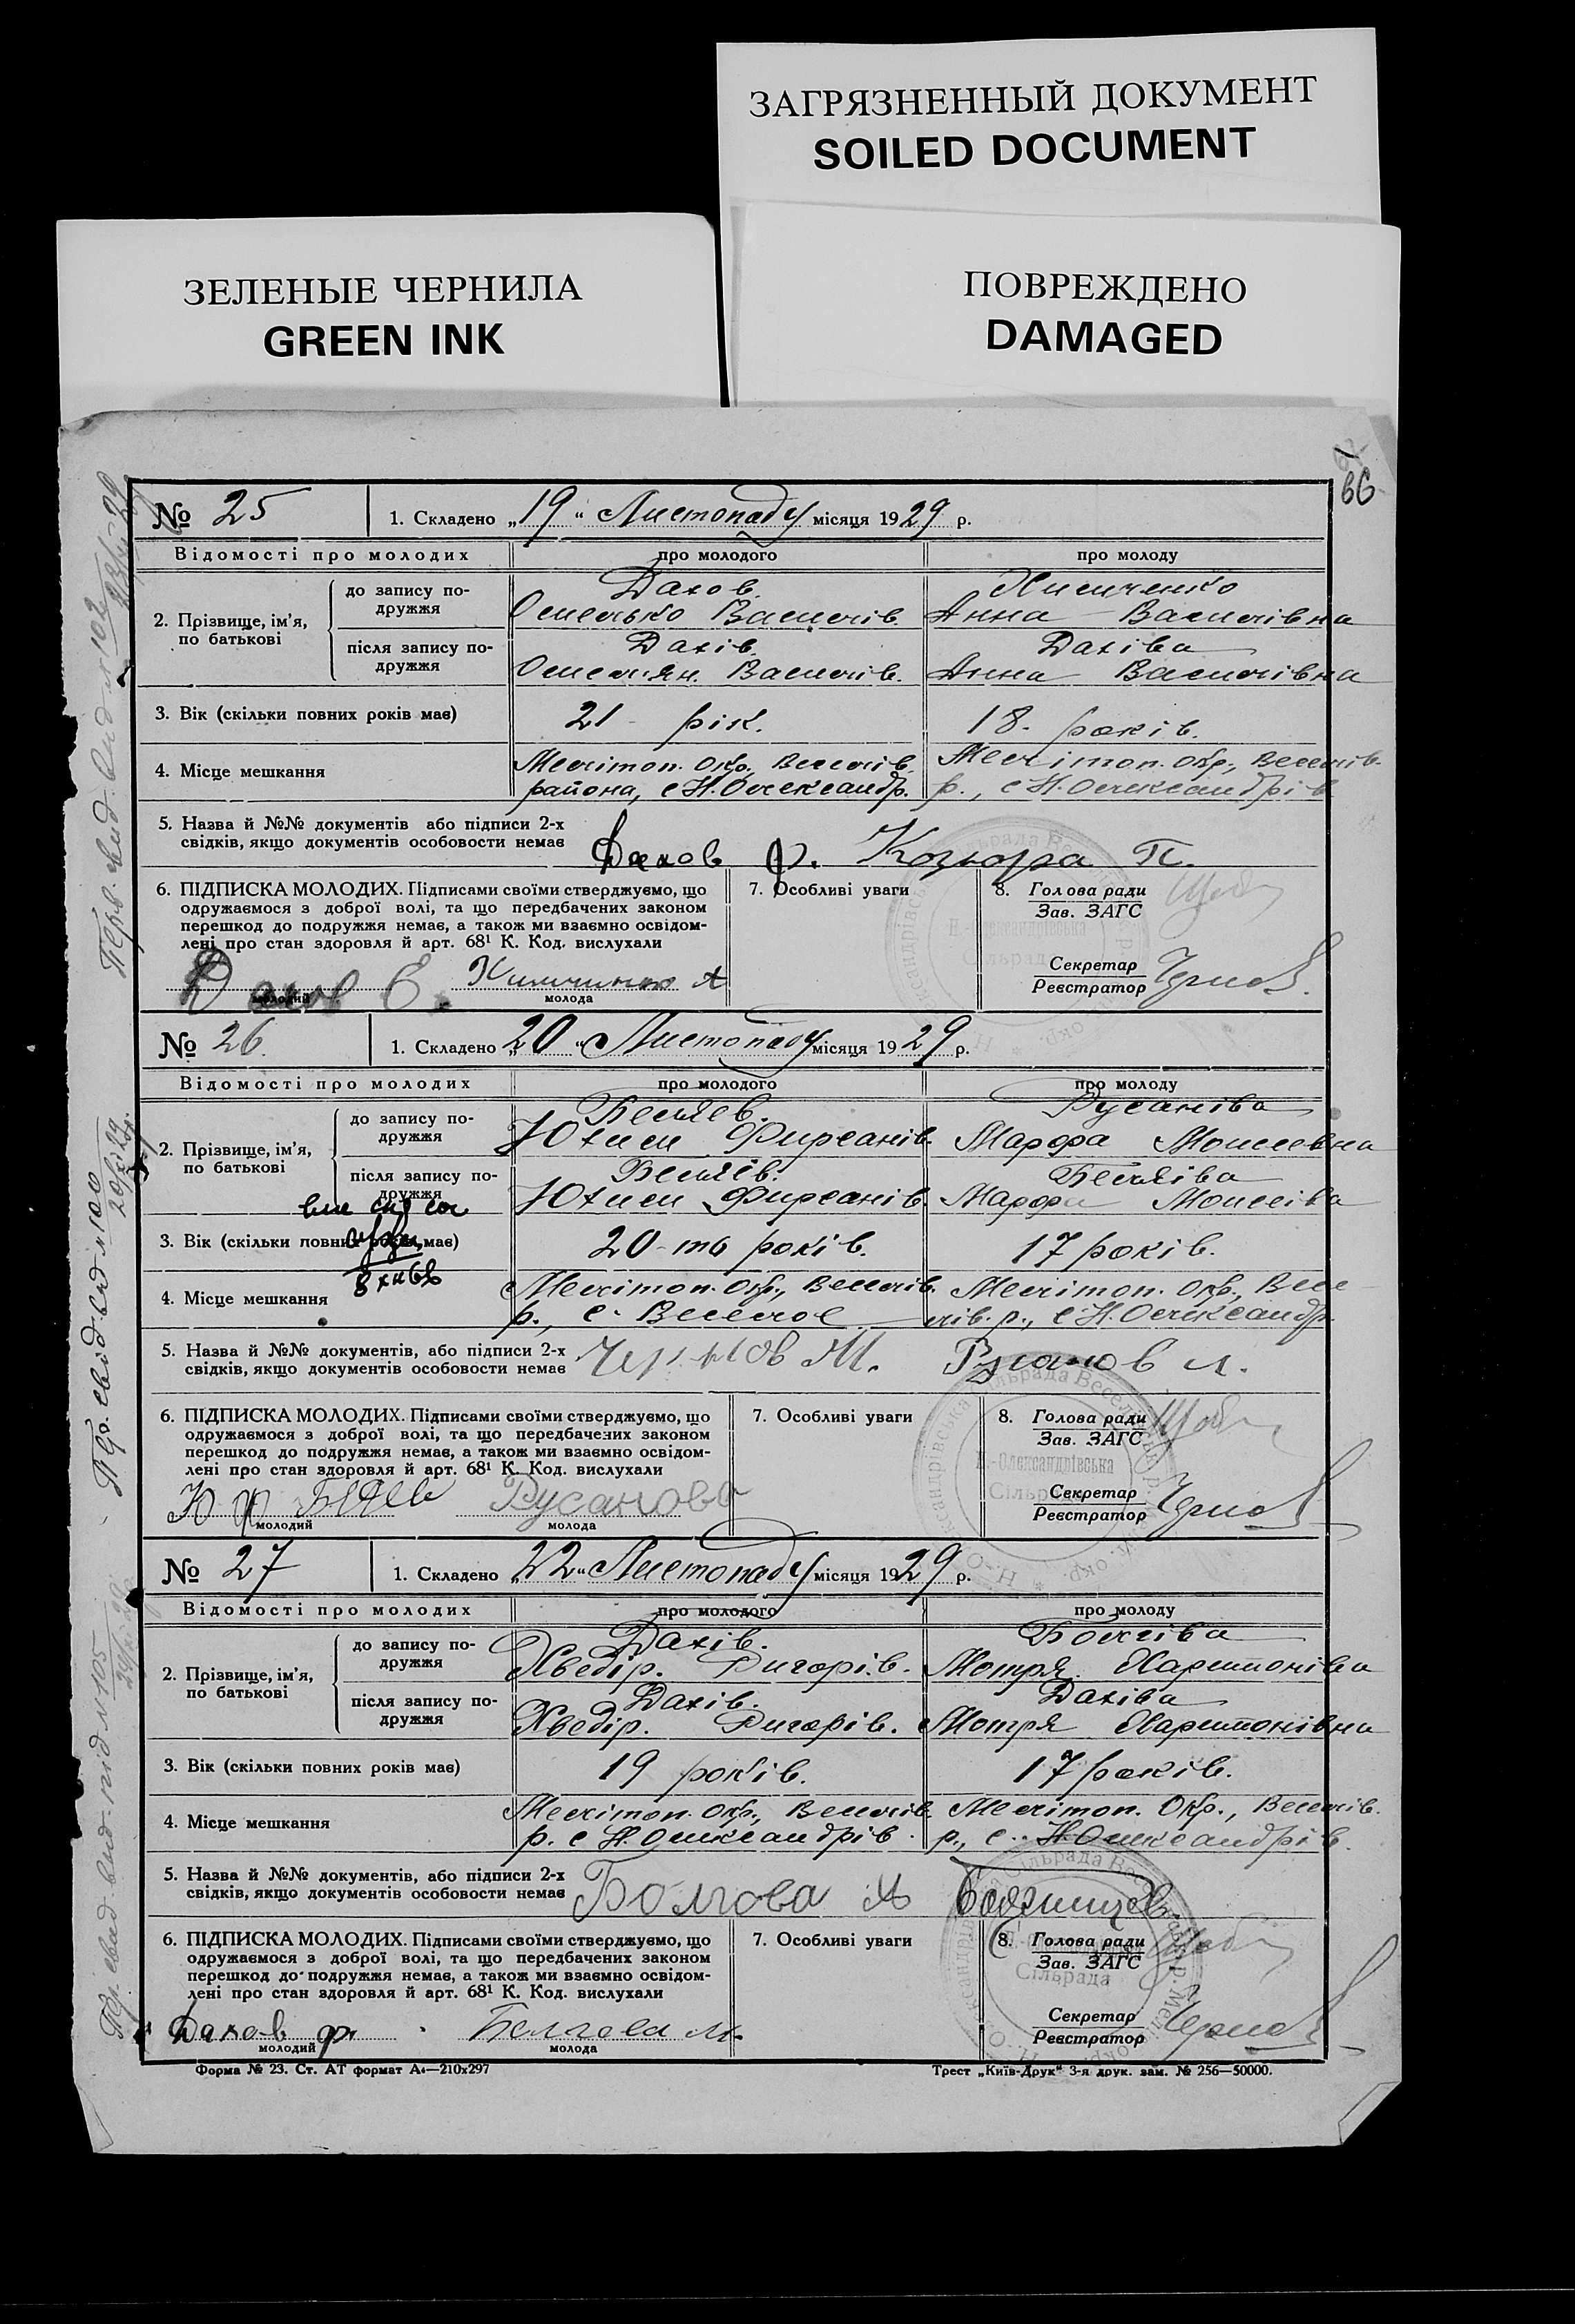 ЗАГРЯЗНЕННЫЙ ДОКУМЕНТ
SOILED DOCUMENT
ЗЕЛЕНЫЕ ЧЕРНИЛА
GREEN INK
ПОВРЕЖДЕНО
DAMAGED
66
№ 25 1. Складено „19“ Листопаду місяця 1929 р.
Відомості про молодих про молодого про молоду
2. Прізвище, ім'я, по батькові
до запису подружжя Дахов.
Омелько Василів. Анна Василівна
після запису подружжя Дахів. Дахіва
Омелян Василів. Анна Василівна
3. Вік (скільки повних років має) 21 рік. 18 років.
4. Місце мешкання Мелітоп. Окр., Веселів. Мелітоп. Окр., Веселів.
района, с Н. Олександр. р., с Н. Олександрів
5. Назва й №№ документів або підписи 2-х
свідків, якщо документів особовости немає Дахов Ф. Козыра П.
6. ПІДПИСКА МОЛОДИХ. Підписами своїми стверджуємо, що
одружаємося з доброї волі, та що передбачених законом
перешкод до подружжя немає, а також ми взаємно освідом-
лені про стан здоровля й арт. 68¹ К. Код. вислухали
7. Особливі уваги
8. Голова ради
Зав. ЗАГС
Секретар
Реєстратор
Дахов Е. А
молодий молода
№ 26 1. Складено „20“ Листопаду місяця 1929 р.
Відомості про молодих про молодого про молоду
2. Прізвище, ім'я, по батькові
до запису подружжя Беляев. Русаніва
Юхим Фирсанів. Марфа Моисеевна
після запису подружжя Беляів. Беляіва
Юхим Фирсанів. Марфа Моисеівна
3. Вік (скільки повних років має) 20-ть років. 17 років.
4. Місце мешкання Мелітоп. Окр., Веселів. Мелітоп. Окр., Весе
р., с. Веселое лів. р., с Н. Олександр.
5. Назва й №№ документів, або підписи 2-х
свідків, якщо документів особовости немає М. Русанов
6. ПІДПИСКА МОЛОДИХ. Підписами своїми стверджуємо, що
одружаємося з доброї волі, та що передбачених законом
перешкод до подружжя немає, а також ми взаємно освідом-
лені про стан здоровля й арт. 68¹ К. Код. вислухали
7. Особливі уваги
8. Голова ради
Зав. ЗАГС
Секретар
Реєстратор
Н.-Олександрівська
Сільрада
Ю Ф Русанова
молодий молода
№ 27 1. Складено „22“ Листопаду місяця 1929 р.
Відомості про молодих про молодого про молоду
2. Прізвище, ім'я, по батькові
до запису подружжя Дахів. Болгіва
Хведір. Григорів. Мотря Харитонівна
після запису подружжя Дахів. Дахіва
Хведір. Григорів. Мотря Харитонівна
3. Вік (скільки повних років має) 19 років. 17 років.
4. Місце мешкання Мелітоп. Окр., Веселів. Мелітоп. Окр., Веселів.
р. с Н. Олександрів. р., с. Н. Олександрів.
5. Назва й №№ документів, або підписи 2-х
свідків, якщо документів особовости немає Болгова А
6. ПІДПИСКА МОЛОДИХ. Підписами своїми стверджуємо, що
одружаємося з доброї волі, та що передбачених законом
перешкод до подружжя немає, а також ми взаємно освідом-
лені про стан здоровля й арт. 68¹ К. Код. вислухали
7. Особливі уваги
8. Голова ради
Зав. ЗАГС
Секретар
Реєстратор
Сільрада
Дахов Ф. Болгова М.
молодий молода
Форма № 23. Ст. АТ формат А4—210х297 Трест „Київ-Друк“ 3-я друк. зам. № 256—50000.